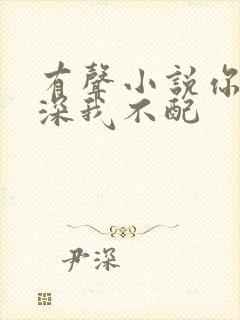 有聲小説你
深我不配
尹深